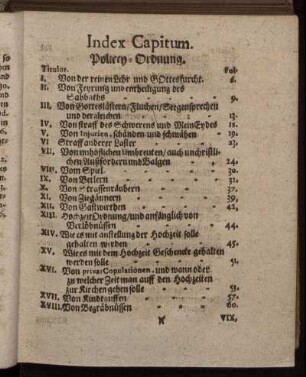 Index Capitum.
Policey-Ordnung.
Titulus. Fol.
I. Von der reinen Lehr und GOttesfurcht. 6.
II. Von Feyrung und entheiligung des
Sabbaths 9.
III. Von Gotteslästern / Fluchen / Seegensprechen
und dergleichen
IV. Von straff des Schwerens und MeinEydes 11.
V. Von Injurien, schänden und schmähen 19.
VI Straff anderer Laster 23.
VII. Von unhöflichen / auch unchristli-
chen Außfordern und Balgen 24.
VIII. Vom Spiel. 30.
IX. Von Betlern 31.
X. Von Strassenräubern 37.
XI. Von Zugännern 39.
XII. Von Gastwirthen 42.
XIII. HochzeitOrdnung / und anfänglich von
Verlöbnüssen 44.
XIV. Wie es mit anstellung der Hochzeit solle
gehalten werden 45.
XV. Wie es mit dem Hochzeit Geschencke gehalten
werden solle 51.
XVI. Von privat Copulationen, und wann oder
zu welcher Zeit man auff den Hochzeiten
zur Kirchen gehen solle 51.
XVII. Von Kindtauffen 57.
XVIII. Von Begräbnüssen 60.
XIX.